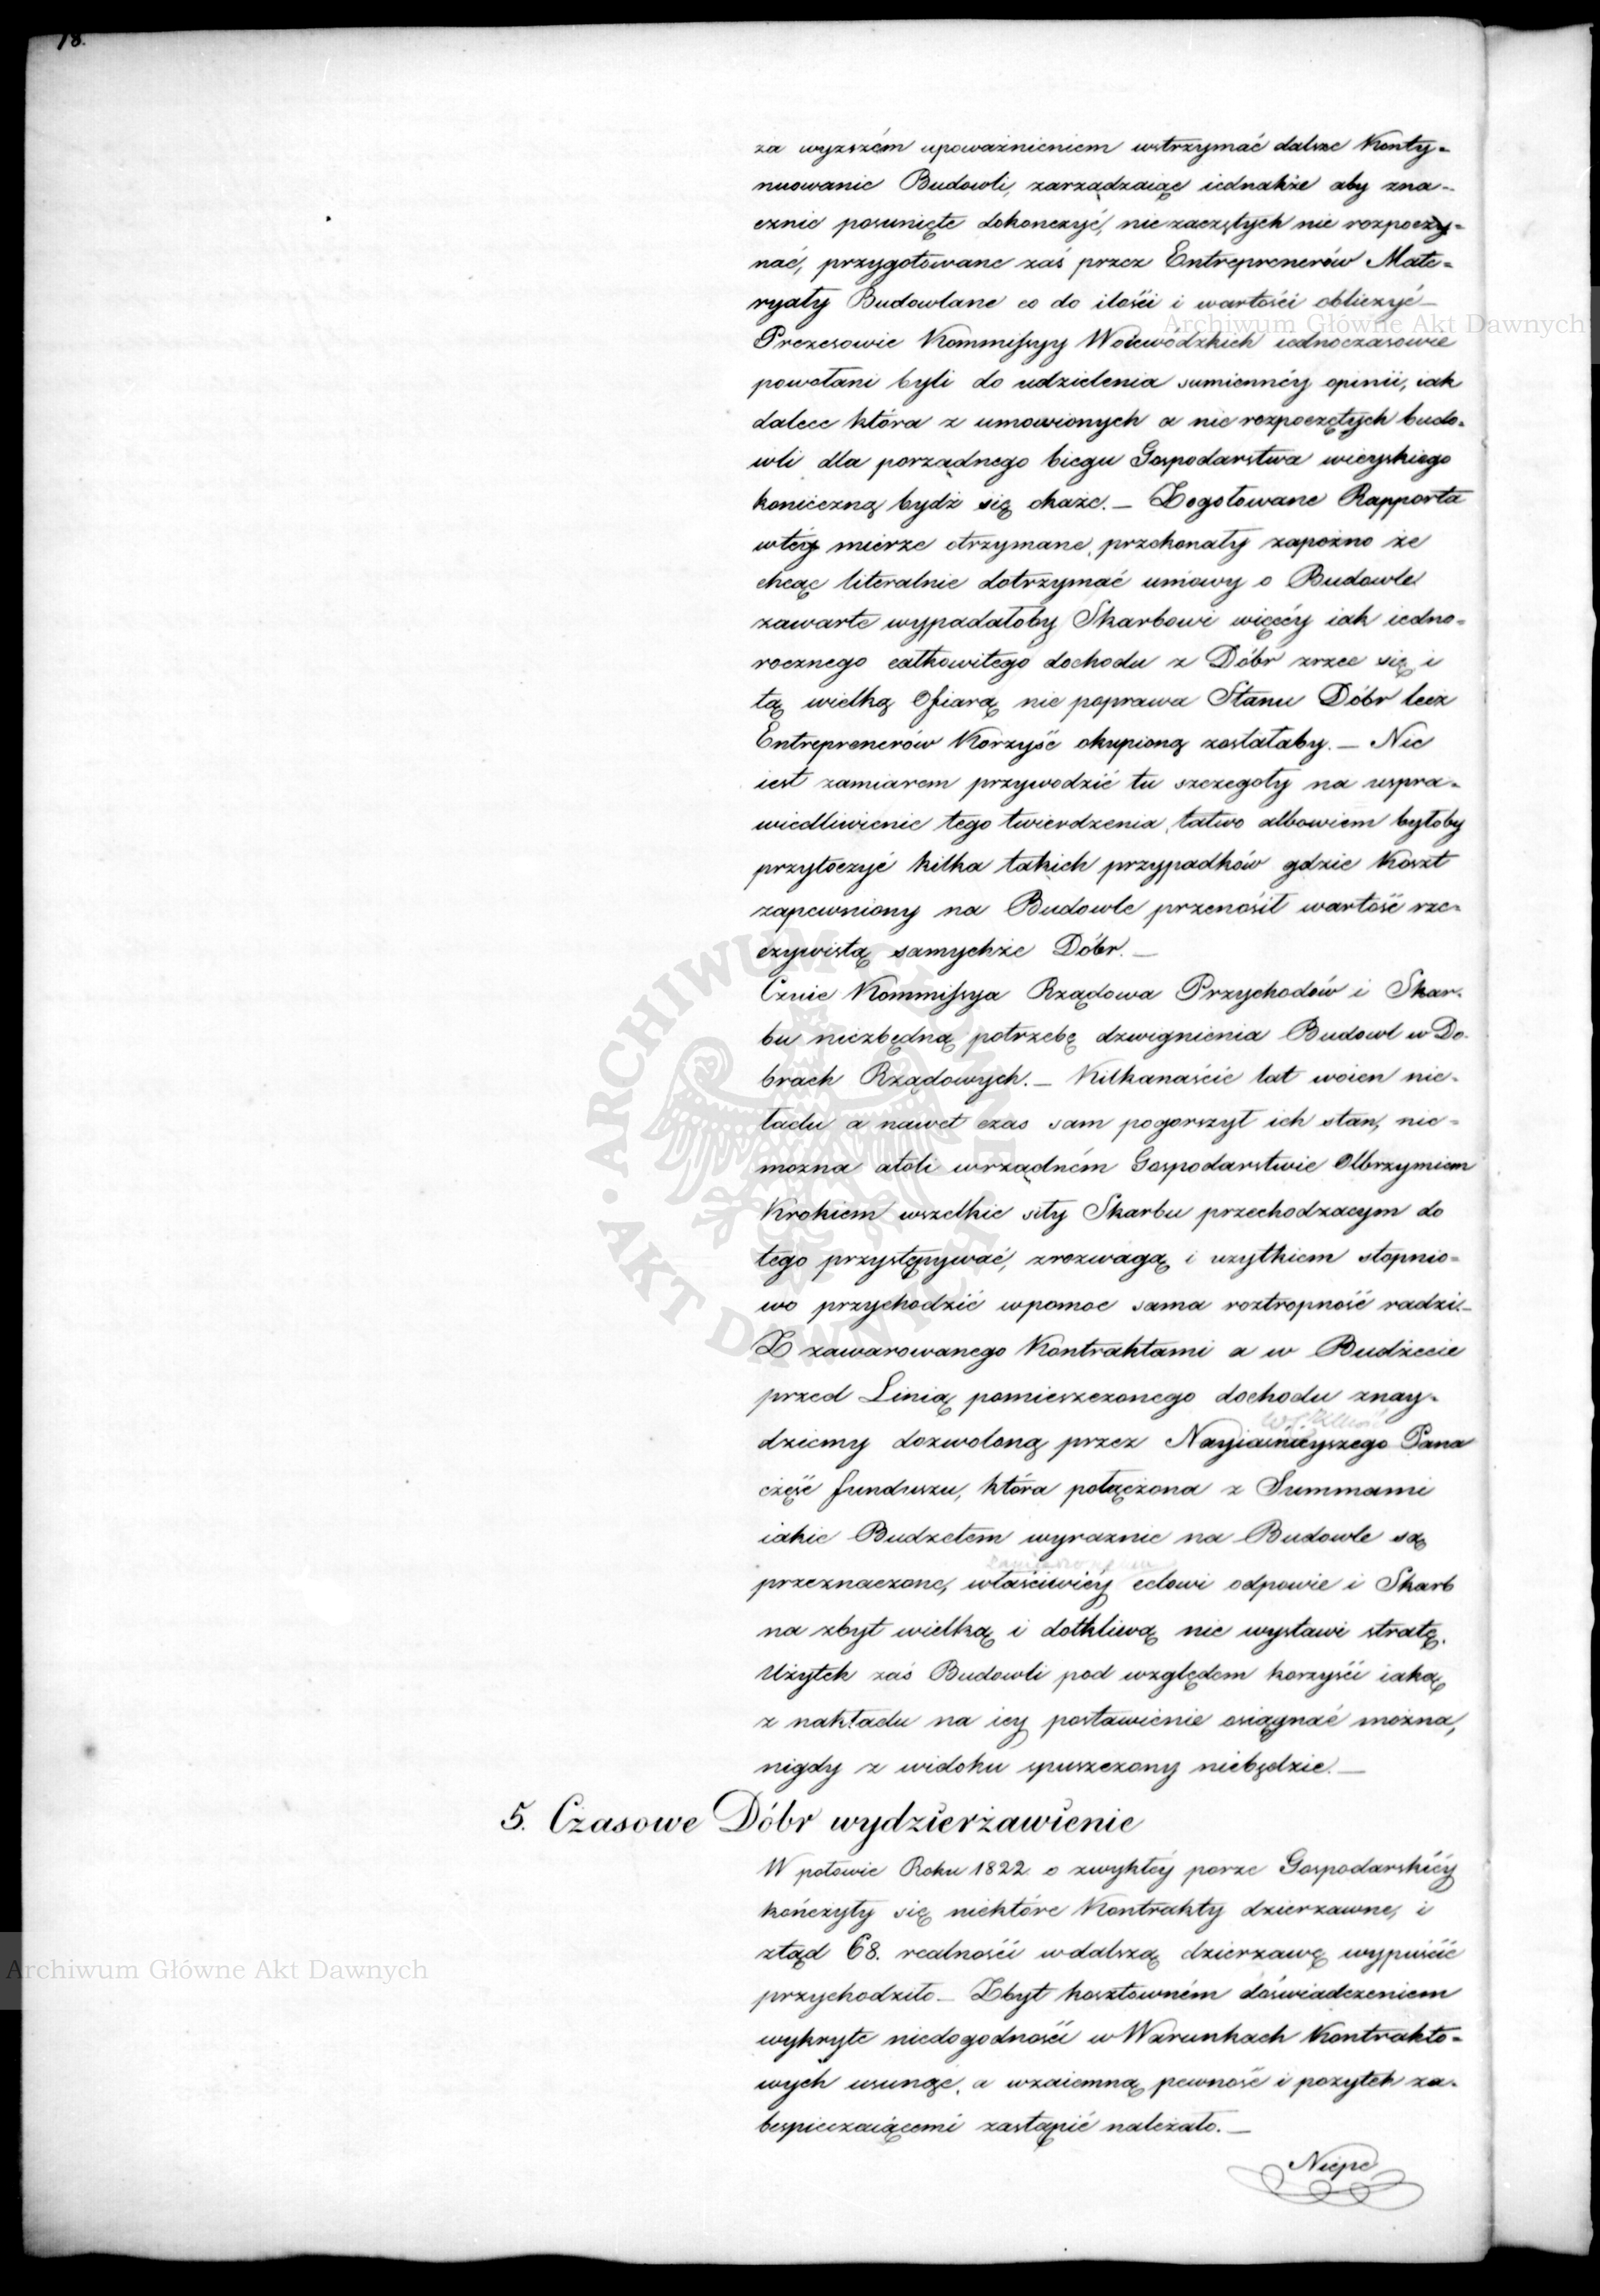 18.
za wyższém upoważnieniem wstrzymać dalsze Konty-
nuowanie Budowli, zarządzaiąc iednakże aby zna-
cznie posunięte dokonczyć, nie zaczętych nie rozpoczy-
nać, przygotowane zaś przez Entreprenerów Mate-
ryały Budowlane co do ilości i wartości obliczyć—
Prezesowie Kommissyy Woiewódzkich iednoczasowie
powołani byli do udzielenia sumiennéy opinii, iak
dalece która z umowionych a nie rozpoczętych budo-
wli dla porządnego biegu Gospodarstwa wieyskiego
konieczną bydź się okaże.— Zogotowane Rapporta
wtéy mierze otrzymane, przekonały zapóżno że
chcąc literalnie dotrzymać umowy o Budowle
zawarte wypadałoby Skarbowi więcéy iak iedno-
rocznego całkowitego dochodu z Dóbr zrzec się i
tą wielką Ofiarą nie poprawa Stanu Dóbr lecz
Entreprenerów Korzyść okupioną zostałaby.— Nie
iest zamiarem przywodzić tu szczegoły na uspra-
wiedliwienie tego twierdzenia, łatwo albowiem byłoby
przytoczyć kilka takich przypadków gdzie Koszt
zapewniony na Budowle przenośił wartość rze-
czywistą samychże Dóbr.—
Czuie Kommissya Rządowa Przychodów i Skar-
bu niezbędną potrzebę dzwignienia Budowl w Do-
brach Rządowych.— Kilkanaście lat woien nie-
ładu a nawet czas sam pogorszył ich stan, nie-
można atoli wrządném Gospodarstwie Olbrzymiem
Krokiem wszelkie siły Skarbu przechodzącym do
tego przystępywać, zrozwagą i użytkiem stopnio-
wo przychodzić wpomoc sama roztropność radzi.—
Z zawarowanego Kontraktami a w Budżecie
przed Linią pomieszczonego dochodu znay-
dziemy dozwoloną przez Nayiasnieyszego Pana
część funduszu, która połączona z Summami
iakie Budżetem wyraznie na Budowle są
przeznaczone, właściwiéy celowi odpowie i Skarb
na zbyt wielką i dotkliwą nie wystawi stratę.
Użytek zaś Budowli pod względem korzyści iaką
z nakładu na iey postawienie osiągnać można,
nigdy z widoku spuszczony niebędzie.—
5. Czasowe Dóbr wydzierżawienie
W połowie Roku 1822 o zwykłéy porze Gospodarskiéy
kończyły się niektóre Kontrakty dzierżawne, i
ztąd 68. realności wdalszą dzierżawę wypuścić
przychodziło— Zbyt kosztowném doświadczeniem
wykryte niedogodności w Warunkach Kontrakto-
wych usunąć, a wzaiemną pewność i pożytek za-
bespieczaiącemi zastąpić należało.—
Niepo
Archiwum Główne Akt Dawnych
Archiwum Główne Akt Dawnych
ARCHIWUM GŁÓWNE AKT DAWNYCH